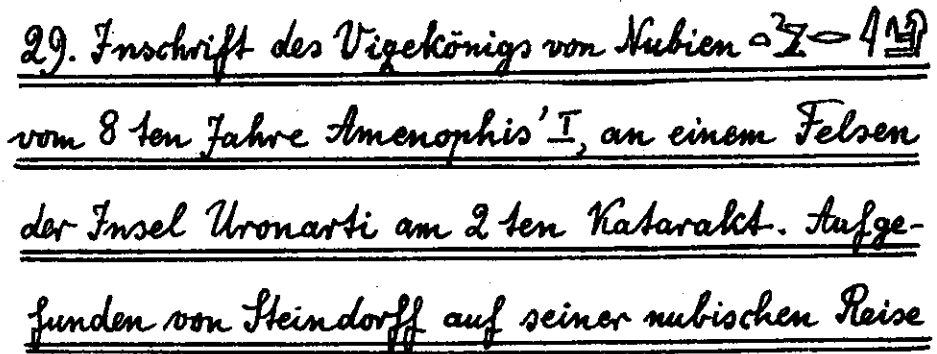 29. Inschrift des Vizekönigs von Nubien
vom 8 ten Jahre Amenophis' I, an einem Felsen
der Insel Uronarti am 2 ten Katarakt. Aufge-
funden von Steindorff auf seiner nubischen Reise